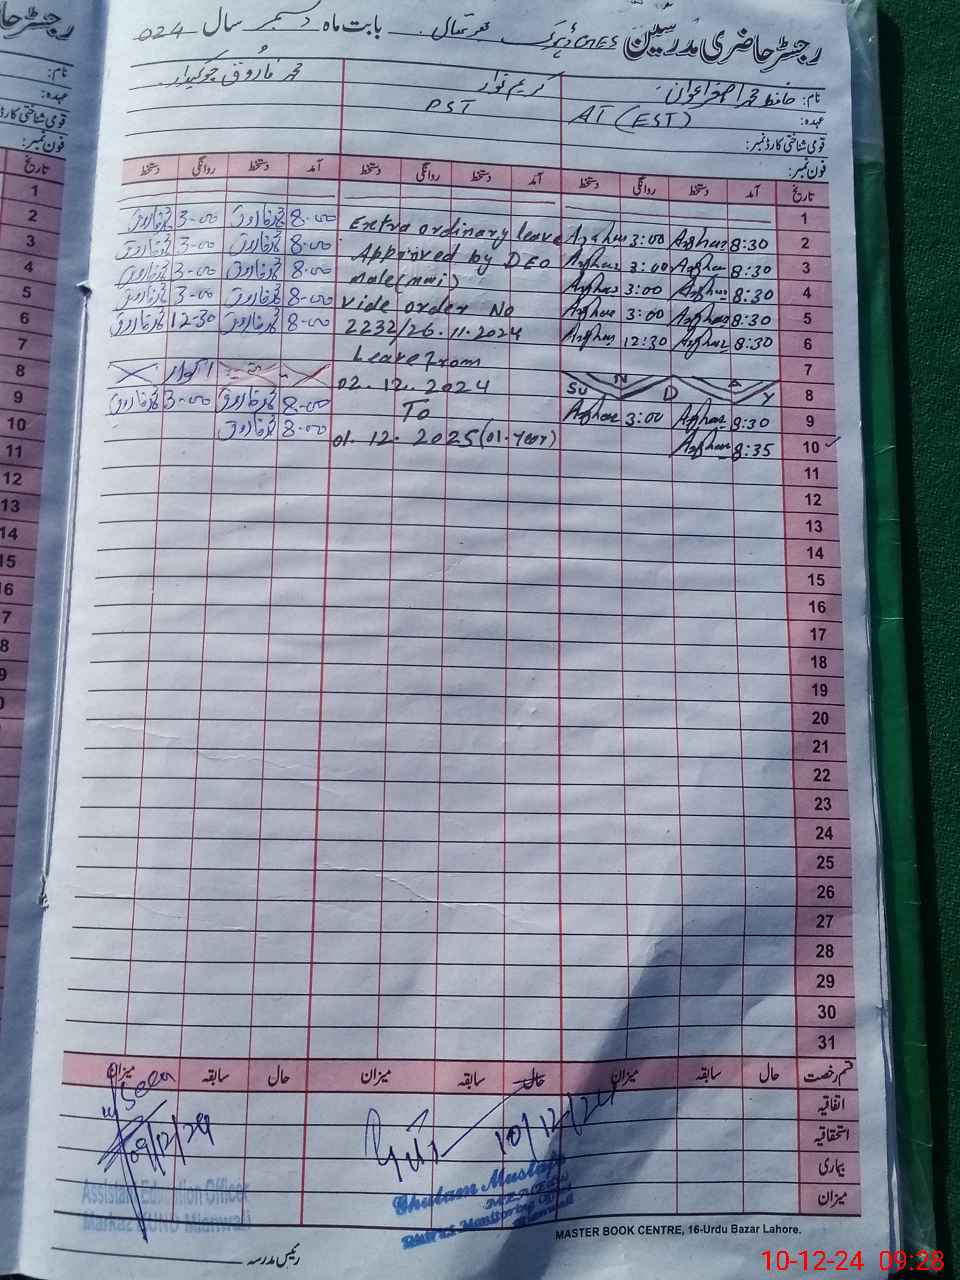 رجسٹر حاضری مدرسین GHES بابت ماہ دسمبر سال 024
نام: حافظ محمد اصغر اعوان کریم نواز محمد فاروق چوکیدار
عہدہ: AT (EST) PST
قومی شناختی کارڈ نمبر:
فون نمبر:
تاریخ آمد دستخط روانگی دستخط آمد دستخط روانگی دستخط آمد دستخط روانگی دستخط
1
2 8:30 Asghar 3:00 Asghar Extra ordinary leave 8-00 محمد فاروق 3-00 محمد فاروق
3 8:30 Asghar 3:00 Asghar Approved by DEO 8-00 محمد فاروق 3-00 محمد فاروق
4 8:30 Asghar 3:00 Asghar male (mwi) 8-00 محمد فاروق 3-00 محمد فاروق
5 8:30 Asghar 3:00 Asghar vide order No 8-00 محمد فاروق 3-00 محمد فاروق
6 8:30 Asghar 12:30 Asghar 2232/26.11.2024 8-00 محمد فاروق 12-30 محمد فاروق
7 Leave from
8 SUNDAY 02.12.2024 اتوار
9 8:30 Asghar 3:00 Asghar To 8-00 محمد فاروق 3-00 محمد فاروق
10 8:35 Asghar 01.12.2025 (01.Year) 8-00 محمد فاروق
11
12
13
14
15
16
17
18
19
20
21
22
23
24
25
26
27
28
29
30
31
قسم رخصت حال سابقہ میزان حال سابقہ میزان حال سابقہ میزان
اتفاقیہ
استحقاقیہ
بیماری
میزان
10/12/24
09/12/24
Ghulam Mustafa
Monitoring
Mianwali
Assistant Education Officer
Markaz Mianwali
MASTER BOOK CENTRE, 16-Urdu Bazar Lahore.
رئیس مدرسہ
10-12-24 09:28
رجسٹر حا
نام:
عہدہ:
قومی شناختی کارڈ
فون نمبر:
تاریخ
1
2
3
4
5
6
7
8
9
10
11
12
13
14
15